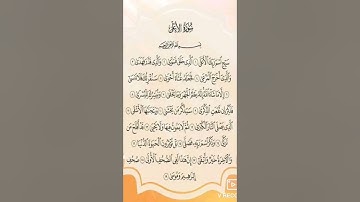 سُورَةُ الأَعْلَى
بِسْمِ اللَّهِ الرَّحْمَنِ الرَّحِيمِ
سَبِّحِ اسْمَ رَبِّكَ الْأَعْلَى ١ الَّذِي خَلَقَ فَسَوَّى ٢ وَالَّذِي قَدَّرَ فَهَدَى ٣
وَالَّذِي أَخْرَجَ الْمَرْعَى ٤ فَجَعَلَهُ غُثَاءً أَحْوَى ٥ سَنُقْرِئُكَ فَلَا تَنْسَى
٦ إِلَّا مَا شَاءَ اللَّهُ إِنَّهُ يَعْلَمُ الْجَهْرَ وَمَا يَخْفَى ٧ وَنُيَسِّرُكَ لِلْيُسْرَى
٨ فَذَكِّرْ إِنْ نَفَعَتِ الذِّكْرَى ٩ سَيَذَّكَّرُ مَنْ يَخْشَى ١٠ وَيَتَجَنَّبُهَا الْأَشْقَى ١١
الَّذِي يَصْلَى النَّارَ الْكُبْرَى ١٢ ثُمَّ لَا يَمُوتُ فِيهَا وَلَا يَحْيَى ١٣ قَدْ أَفْلَحَ مَنْ
تَزَكَّى ١٤ وَذَكَرَ اسْمَ رَبِّهِ فَصَلَّى ١٥ بَلْ تُؤْثِرُونَ الْحَيَاةَ الدُّنْيَا ١٦
وَالْآخِرَةُ خَيْرٌ وَأَبْقَى ١٧ إِنَّ هَذَا لَفِي الصُّحُفِ الْأُولَى ١٨ صُحُفِ
إِبْرَاهِيمَ وَمُوسَى ١٩